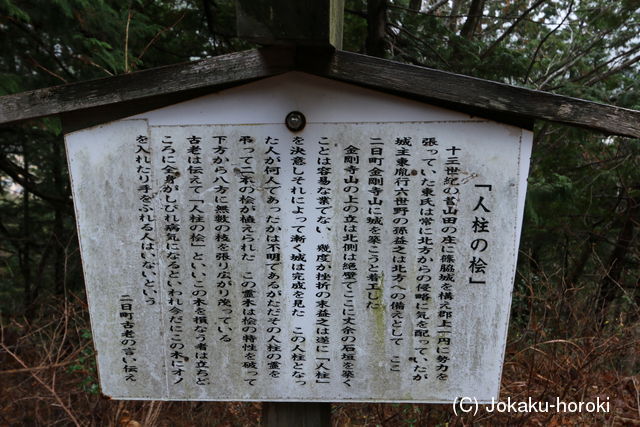 「人柱の桧」
十三世紀の昔山田の庄に篠脇城を構え郡上一円に勢力を
張っていた東氏は常に北方からの侵略に気を配っていたが
城主東胤行六世野の孫益之は北方への備えとして ここ
二日町金剛寺山に城を築こうと着工した
金剛寺山の上の立は北側は絶壁でここに大命の石垣を築く
ことは容易な業でない 幾度か挫折の末益之は遂に「人柱」
を決意しそれによって漸く城は完成を見た この人柱となっ
た人が何人であったかは不明であるがただその人柱の霊を
弔って二本の桧が植えられた この霊木は桧の特性を破って
下方から八方に無数の枝を張り広がり茂っている
古老は伝えて「人柱の桧」といいこの木を損なう者は立ちど
ころに全身がしびれ病気になるといわれ今だにこの木にオノ
を入れたり手をふれる人はいないという
二日町古老の言い伝え
(C) Jokaku-horoki